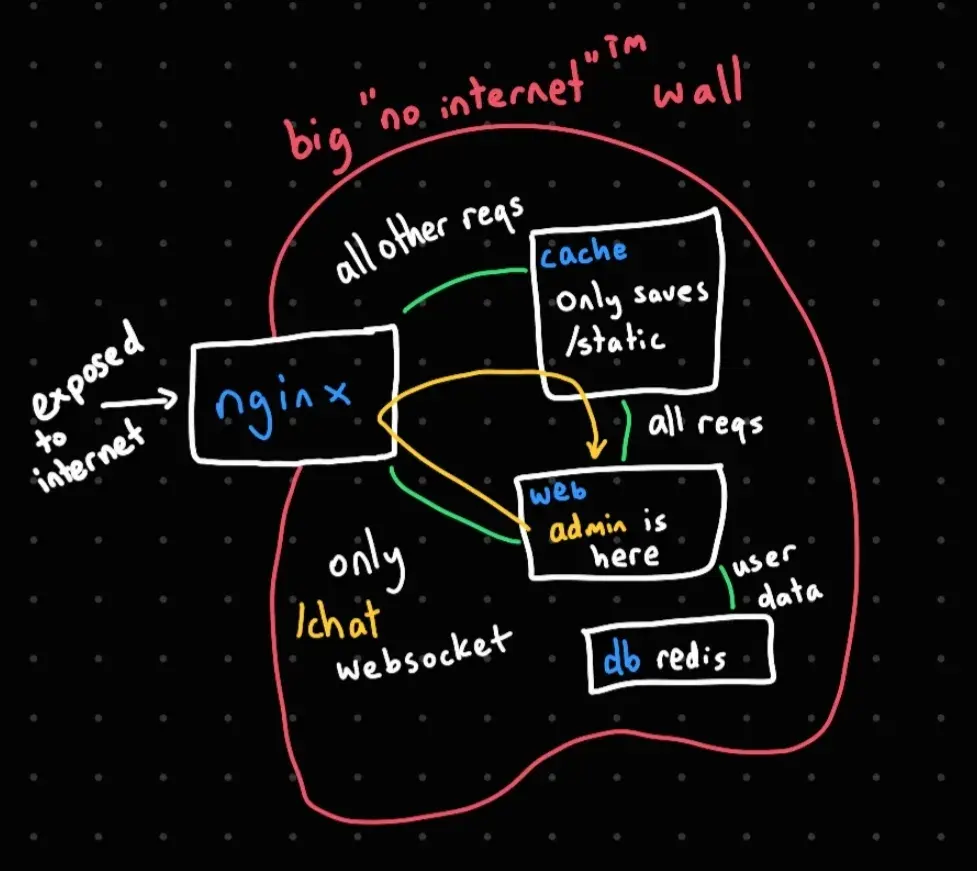 big "no internet"™ wall
all other reqs
cache
only saves
/static
exposed
to
internet
nginx
all reqs
web
admin is
here
only
/chat
websocket
user
data
db redis